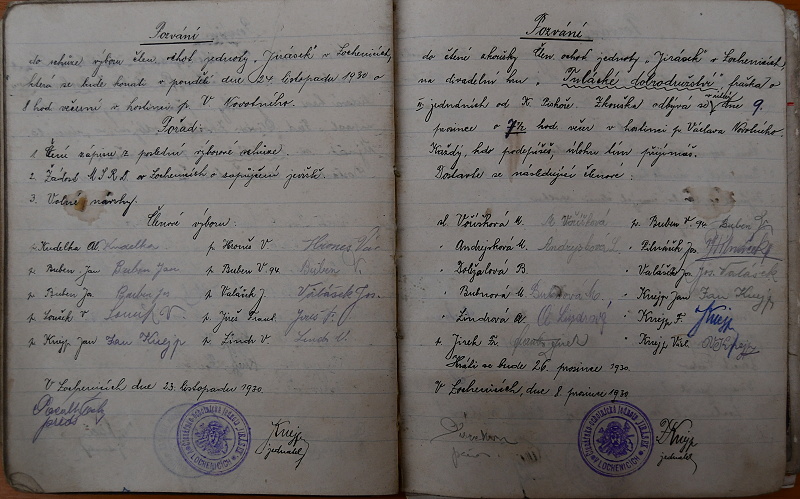 Pozvání
do schůze výboru člen. ochot. jednoty „Jirásek" v Lochenicích,
která se bude konati v pondělí dne 24. listopadu 1930 o
8 hod večerní v hostinci p. V. Novotného.
Pořad:
1. Čtení zápisu z poslední výborové schůze.
2. Žádost M.S.R.D. v Lochenicích o zapůjčení jeviště.
3. Volné návrhy.
Členové výboru:
Kudelka Al. Kudelka p. Hroneš V.
p. Buben Jan Buben Jan p. Buben V. 94 Buben V.
p. Buben Jos. Buben Jos. p. Valášek J. Valášek Jos.
p. Louček V. p. Jireš Frant. Jireš F.
p. Knejp Jan Jan Knejp p. Lindr V. Lindr V.
V Lochenicích dne 23. listopadu 1930.
Knejp
jednatel
JIRÁSEK
LOCHENICÍCH
Pozvání
do čtené zkoušky člen. ochot. jednoty „Jirásek" v Lochenicích,
na divadelní hru „ dobrodružství" fraška o
jednáních od K. Zkouška odbývá se v úterý dne 9.
prosince o 7½ hod. večer v hostinci p. Václava Novotného.
Každý, kdo podepíše, úlohu tím přijímá.
Dostavte se následující členové:
sl. Voříšková M. M. Voříšková p. Buben V. 94 Buben
" Andrejsková M. " Jos.
" Doležalová B. " Valášek Jos. Valášek
" Bubnová M. Bubnová M. " Knejp Jan Jan Knejp
" Lindrová A. A. Lindrová " Knejp F. Knejp
p. Jireš Fr. " Knejp
Hráti se bude 26. prosince 1930.
V Lochenicích, dne 8. prosince 1930
Knejp
jednatel
JIRÁSEK
LOCHENICÍCH